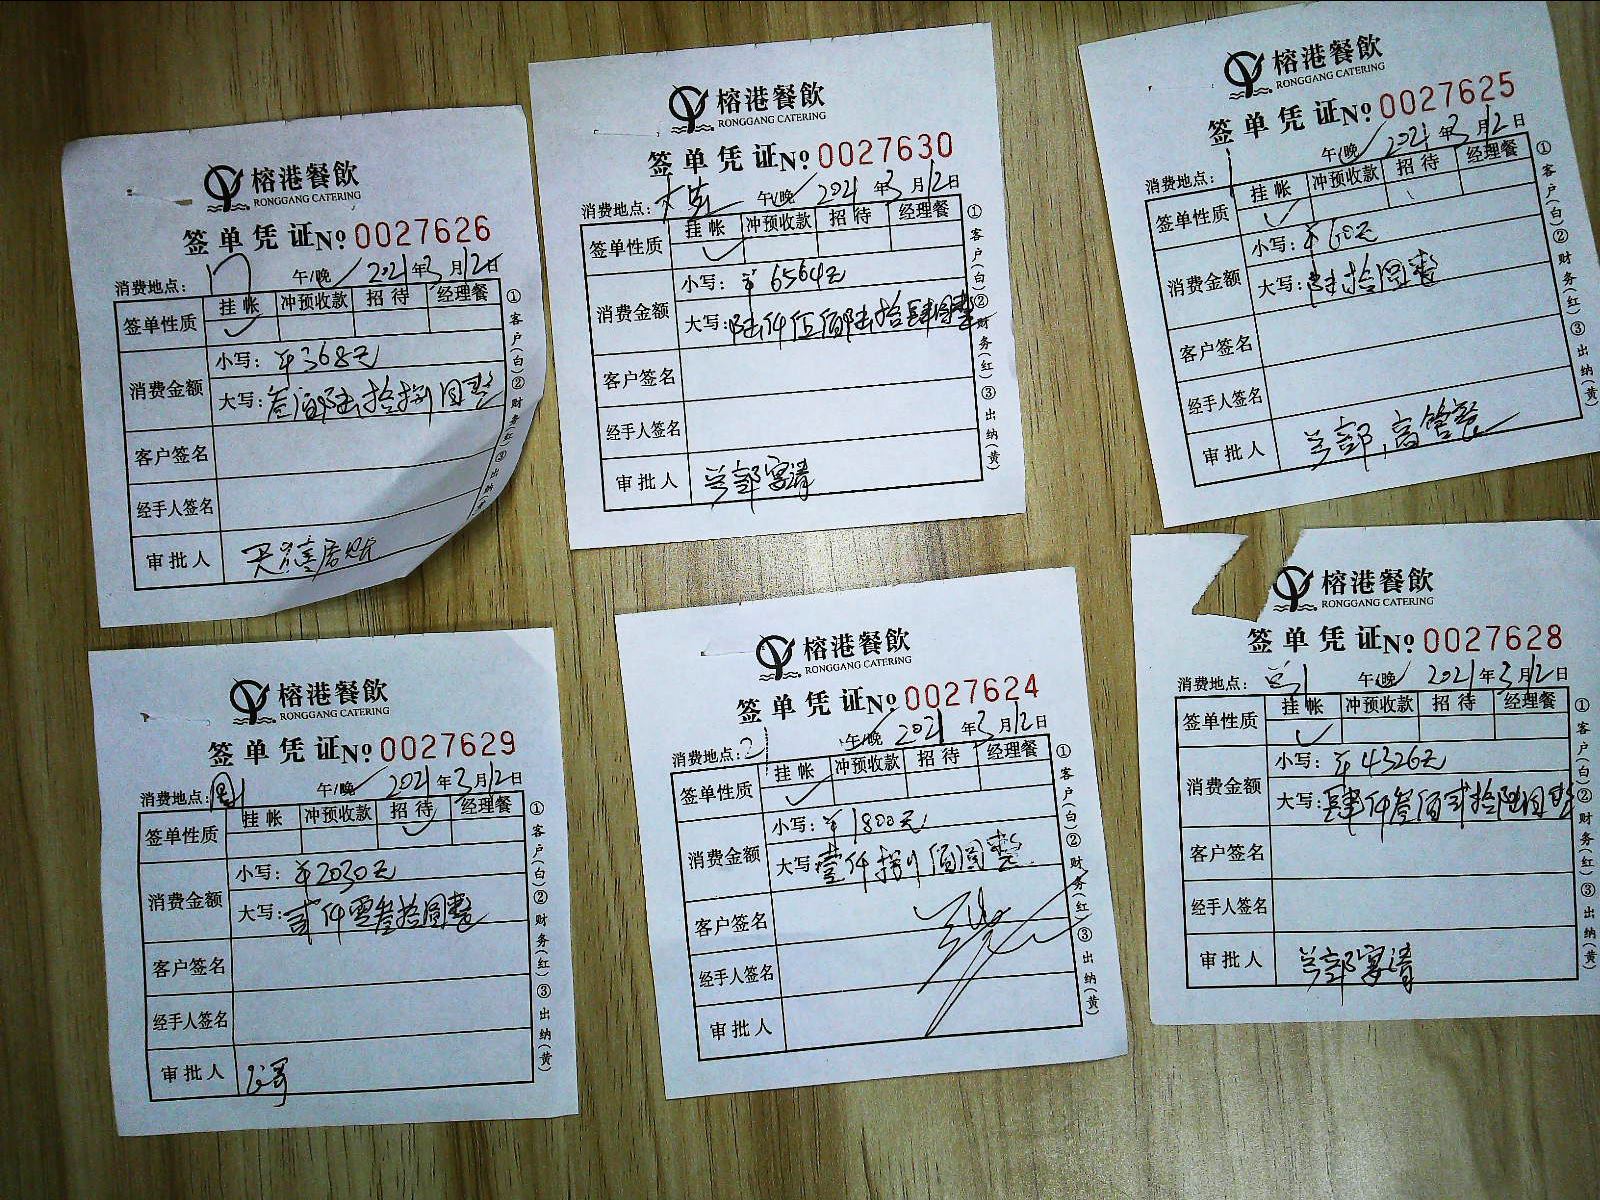 榕港餐飲
RONGGANG CATERING
签单凭证№ 0027626
消费地点: 午/晚 2021年3月12日
签单性质 挂帐 冲预收款 招待 经理餐
消费金额
小写: ¥368元
大写: 叁佰陆拾捌圆整
客户签名
经手人签名
审批人
①客户(白)②财务(红)③出纳
榕港餐飲
RONGGANG CATERING
签单凭证№ 0027630
消费地点: 午/晚 2021年3月12日
签单性质 挂帐 冲预收款 招待 经理餐
消费金额
小写: ¥6564元
大写: 陆仟伍佰陆拾肆圆整
客户签名
经手人签名
审批人 兰部宴请
①客户(白)②财务(红)③出纳(黄)
榕港餐飲
RONGGANG CATERING
签单凭证№ 0027625
消费地点: 午/晚 2021年3月12日
签单性质 挂帐 冲预收款 招待 经理餐
消费金额
小写: ¥60元
大写: 陆拾圆整
客户签名
经手人签名
审批人 兰部,高管餐
①客户(白)②财务(红)③出纳(黄)
榕港餐飲
RONGGANG CATERING
签单凭证№ 0027629
消费地点: 午/晚 2021年3月12日
签单性质 挂帐 冲预收款 招待 经理餐
消费金额
小写: ¥2030元
大写: 贰仟零叁拾圆整
客户签名
经手人签名
审批人
①客户(白)②财务(红)③出纳(黄)
榕港餐飲
RONGGANG CATERING
签单凭证№ 0027624
消费地点: 午/晚 2021年3月12日
签单性质 挂帐 冲预收款 招待 经理餐
消费金额
小写: ¥1800元
大写: 壹仟捌佰圆整
客户签名
经手人签名
审批人
①客户(白)②财务(红)③出纳(黄)
榕港餐飲
RONGGANG CATERING
签单凭证№ 0027628
消费地点: 午/晚 2021年3月12日
签单性质 挂帐 冲预收款 招待 经理餐
消费金额
小写: ¥4326元
大写: 肆仟叁佰贰拾陆圆整
客户签名
经手人签名
审批人 兰部宴请
①客户(白)②财务(红)③出纳(黄)